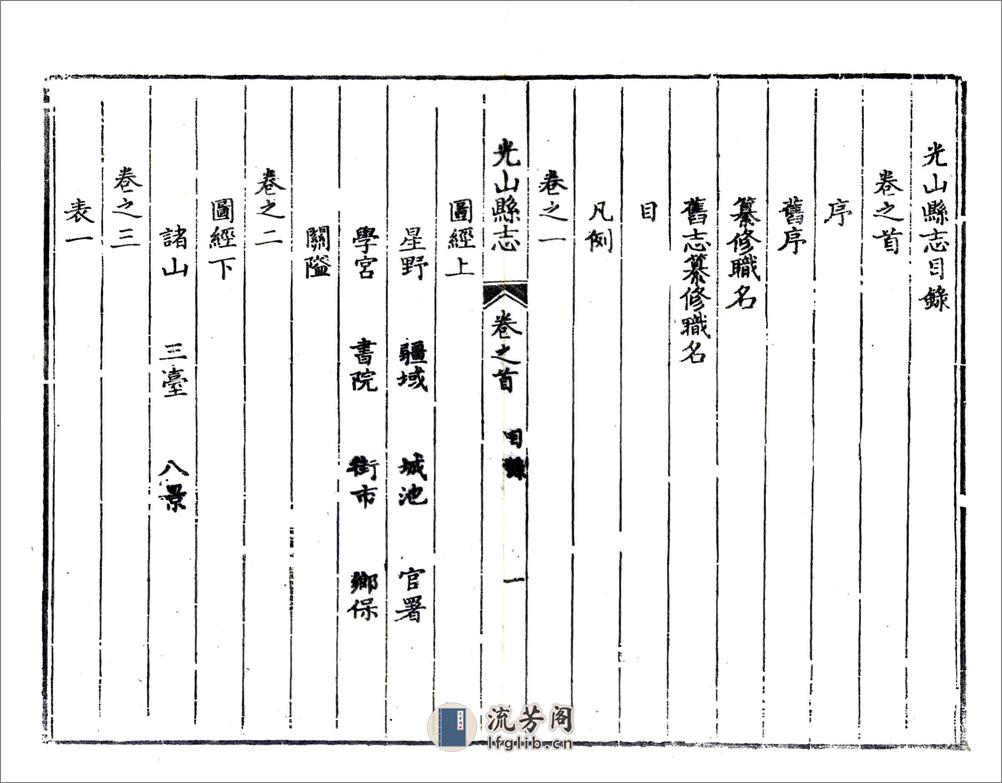 光山縣志目錄
卷之首
序
舊序
纂修職名
舊志纂修職名
目
凡例
卷之一
光山縣志 卷之首 目錄 一
圖經上
星野 疆域 城池 官署
學宮 書院 街市 鄉保
關隘
卷之二
圖經下
諸山 三臺 八景
卷之三
表一
流芳阁
lfglib.cn